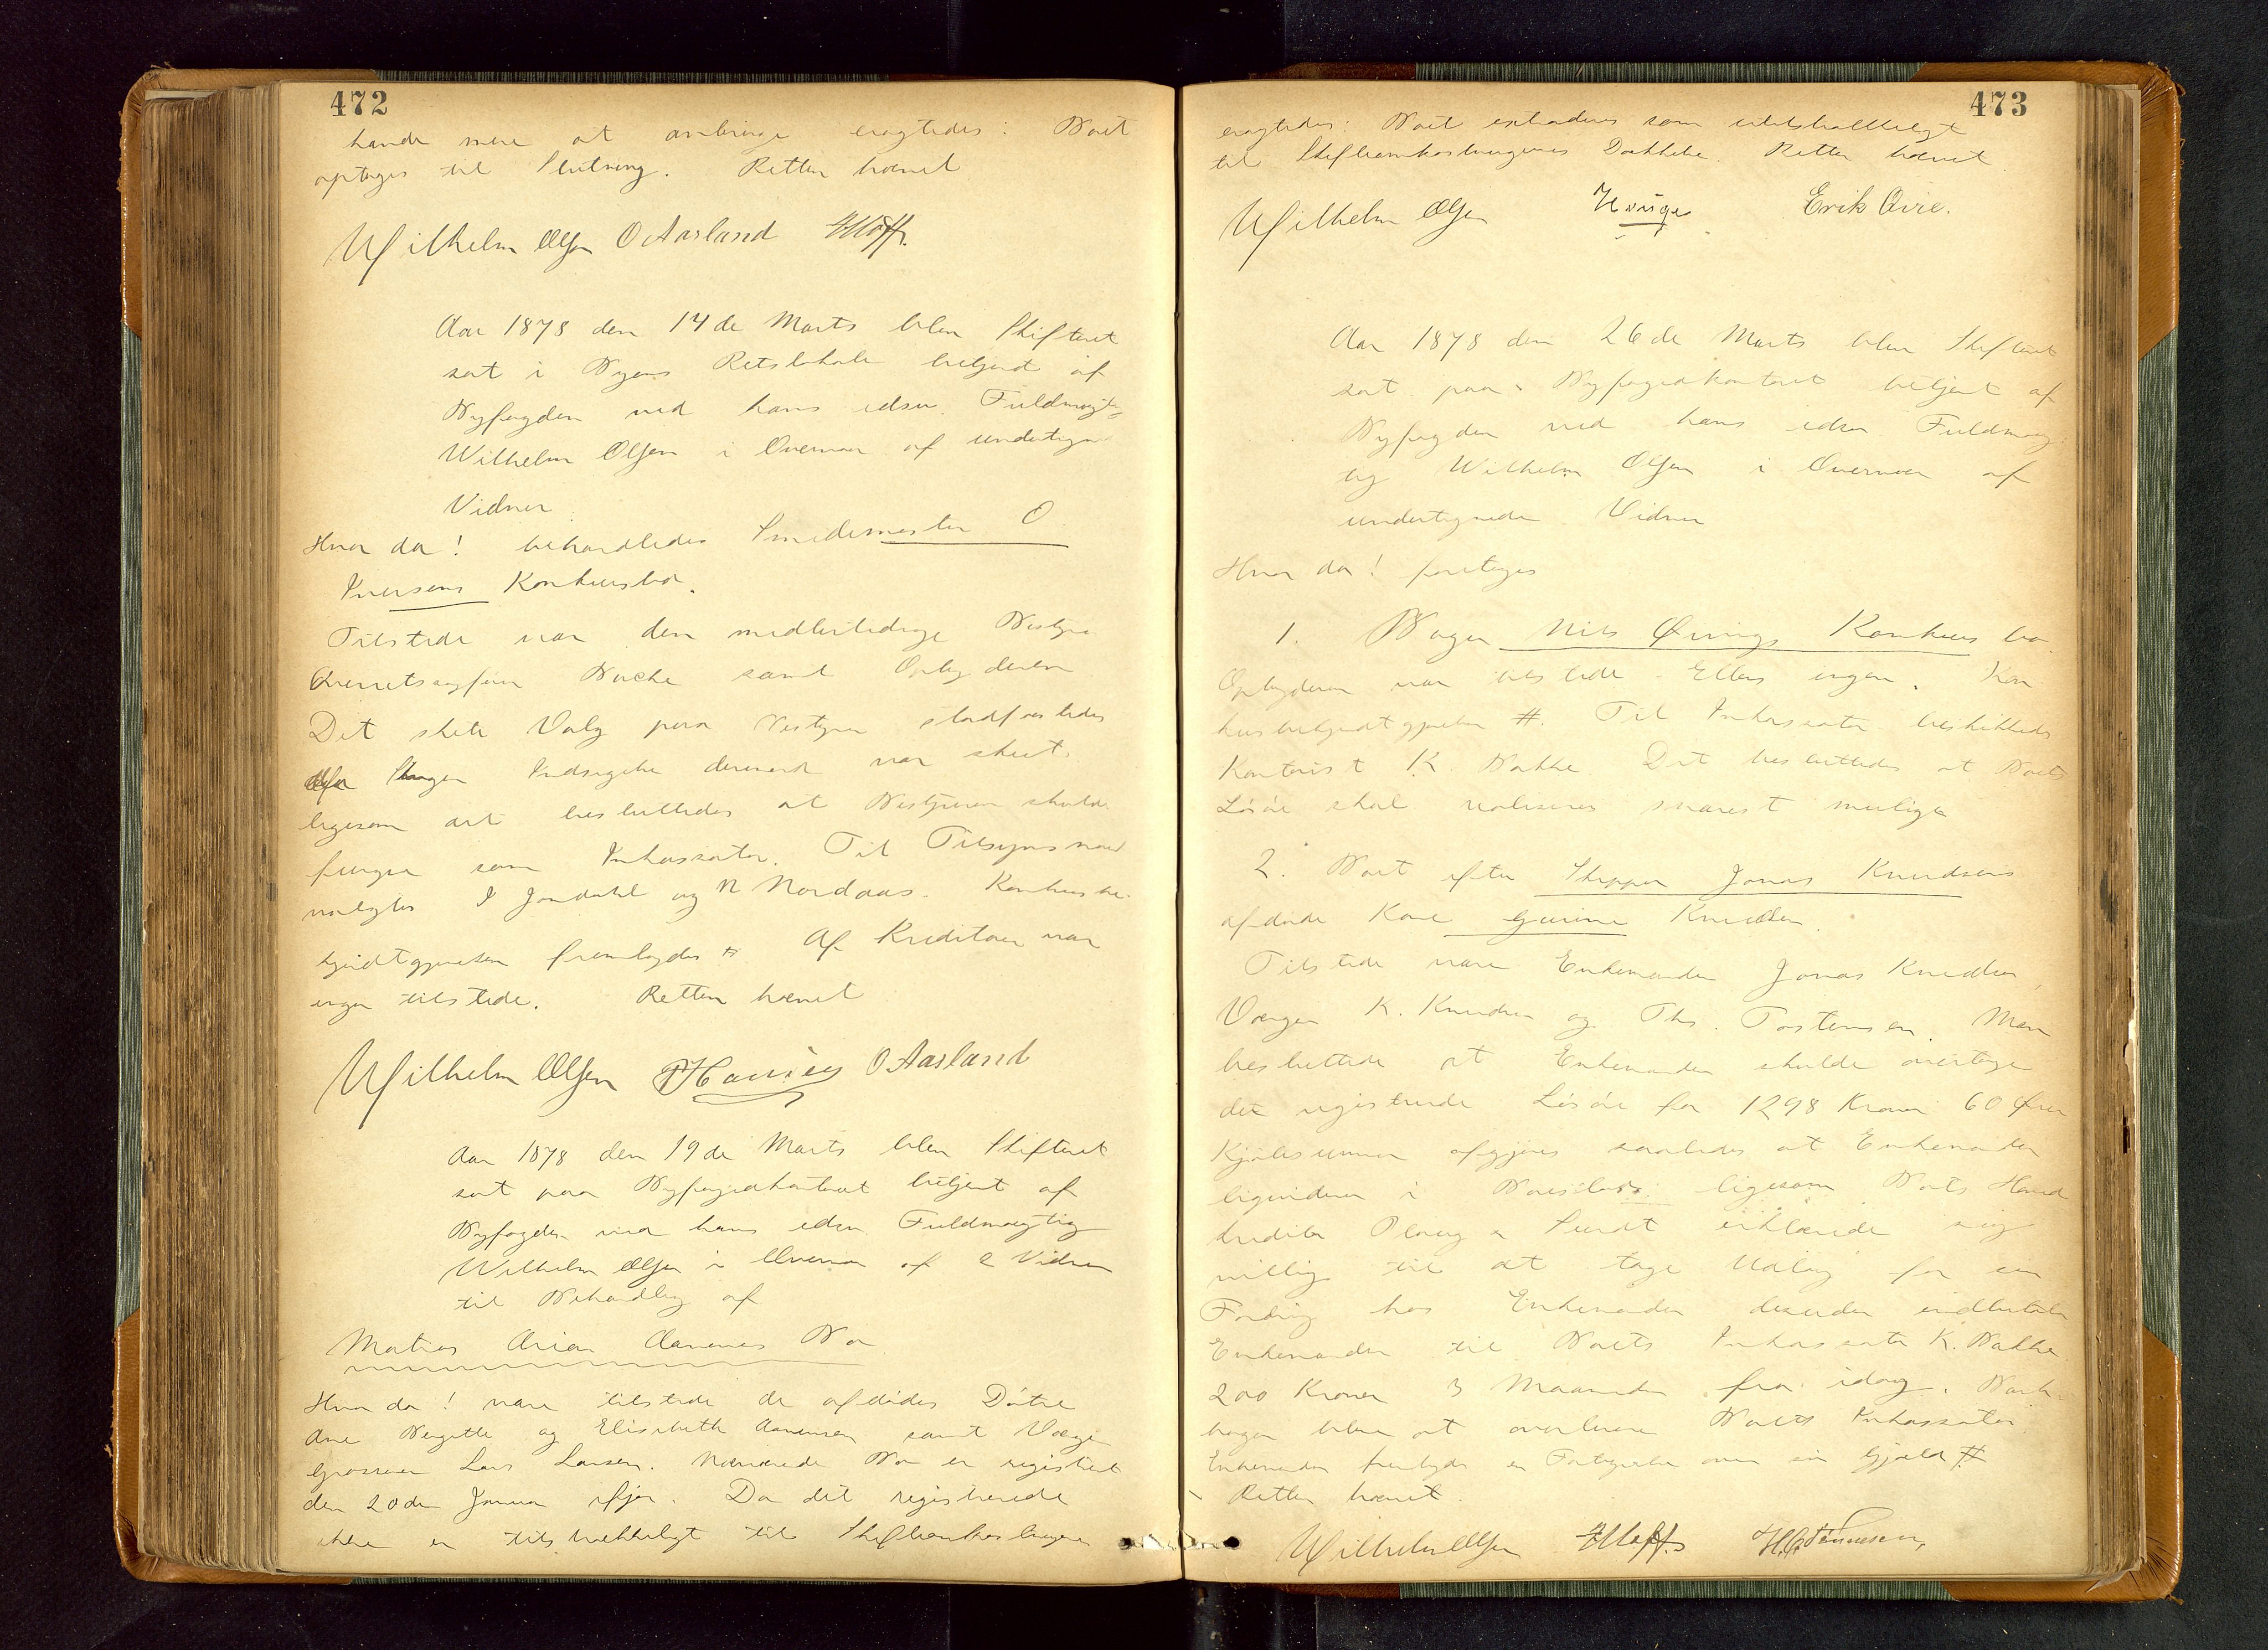 472
havde mere at anbringe eragtedes: Boet
optages til Slutning. Retten hævet
Wilhelm Olsen O Aarland
Aar 1878 den 14de Marts blev Skifteret
sat i Byens Retslokale betjent af
Byfogden ved hans edsv. Fuldmægt
Wilhelm Olsen i Overvær af undertegn
Vidner
Hvor da! behandledes Smedemester O
Iversens Konkursbo.
Tilstede var den midlertidige Bestyrer
Overretssagfører Backe samt Opbyderen
Det skete Valg paa Bestyrer stadfæstedes
Ingen Indsigelse derimod var skeet
ligesom det besluttedes at Bestyreren skulde
fungere som Inkassator. Til Tilsynsmænd
valgtes I Jondahl og N Nordaas. Konkursbe-
kjendtgjørelsen fremlagdes # Af Kreditorer var
ingen tilstede. Retten hævet
Wilhelm Olsen Hansen O Aarland
Aar 1878 den 19de Marts blev Skifteret
sat paa Byfogedkontoret betjent af
Byfogden ved hans edsv Fuldmægtig
Wilhelm Olsen i Overvær af 2 Vidner
til Behandling af
Matias Arian Aanenes Bo
Hvor da! vare tilstede de afdødes Døtre
Ane Bergitte og Elisabeth Aanensen samt Værge
Grosserer Lars Larsen. Nærværende Bo er registrert
den 20de Januar ifjor. Da det registrerede
ikke er tilstrækkeligt til Skifteomkostningerne
473
eragtedes: Boet extraderes som utilstrækkeligt
til Skifteomkostningernes Dækkelse. Retten hævet
Wilhelm Olsen Hauge Erik Øvre.
Aar 1878 den 26de Marts blev Skifteret
sat paa Byfogedkontoret betjent af
Byfogden ved hans edsv Fuldmæg
tig Wilhelm Olsen i Overvær af
undertegnede Vidner
Hvor da! foretoges
1. Bager Nils Øvrings Konkurs bo.
Opbyderen var tilstede. Ellers ingen. Kon
kursbekjendtgjørelsen #. Til Inkassator beskikkedes
Kontorist K. Bakke. Det besluttedes at Boets
Løsøre skal realiseres snarest muligt
2. Boet efter Skipper Jonas Knudsens
afdøde Kone Gurine Knudsen.
Tilstede vare Enkemanden Jonas Knudsen
Værgen K. Knudsen og Ths. Tostensen. Man
besluttede at Enkemanden skulde overtage
det registrerede Løsøre for 1298 Kroner 60 Ører
Kjøbesummen afgjøres saaledes at Enkemanden
ligviderer i Boeslod ligesom Boets Hoved
kreditor Plough & Sundt erklærede sig
villig til at tage Udlæg for sin
Fordring hos Enkemanden desuden indbetaler
Enkemanden til Boets Inkassator K. Bakke
200 Kroner 3 Maaneder fra idag. Bank
bogen blev at overlevere Boets Inkassator
Enkemanden fremlagde en Fortegnelse over sin Gjæld #
Retten hævet.
Wilhelm Olsen H. C. Tønnesen,